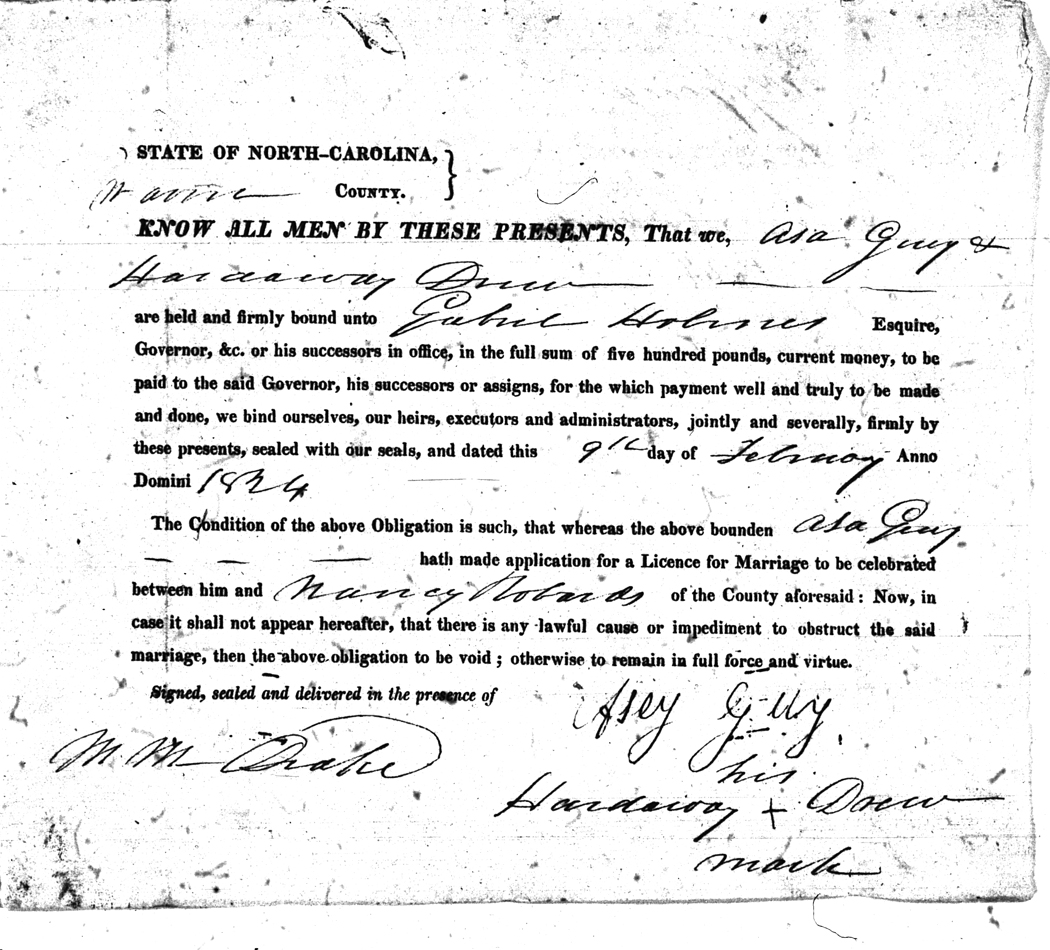 STATE OF NORTH-CAROLINA, }
COUNTY.
KNOW ALL MEN BY THESE PRESENTS, That we, Asa Guy &
Hardaway Drew
are held and firmly bound unto Gabriel Holmes Esquire,
Governor, &c. or his successors in office, in the full sum of five hundred pounds, current money, to be
paid to the said Governor, his successors or assigns, for the which payment well and truly to be made
and done, we bind ourselves, our heirs, executors and administrators, jointly and severally, firmly by
these presents, sealed with our seals, and dated this 9th day of February Anno
Domini 1824
The Condition of the above Obligation is such, that whereas the above bounden Asa Guy
— — — hath made application for a Licence for Marriage to be celebrated
between him and Nancy Robards of the County aforesaid: Now, in
case it shall not appear hereafter, that there is any lawful cause or impediment to obstruct the said
marriage, then the above obligation to be void; otherwise to remain in full force and virtue.
Signed, sealed and delivered in the presence of
Asey Guy
M M Drake
his
Hardaway + Drew
mark